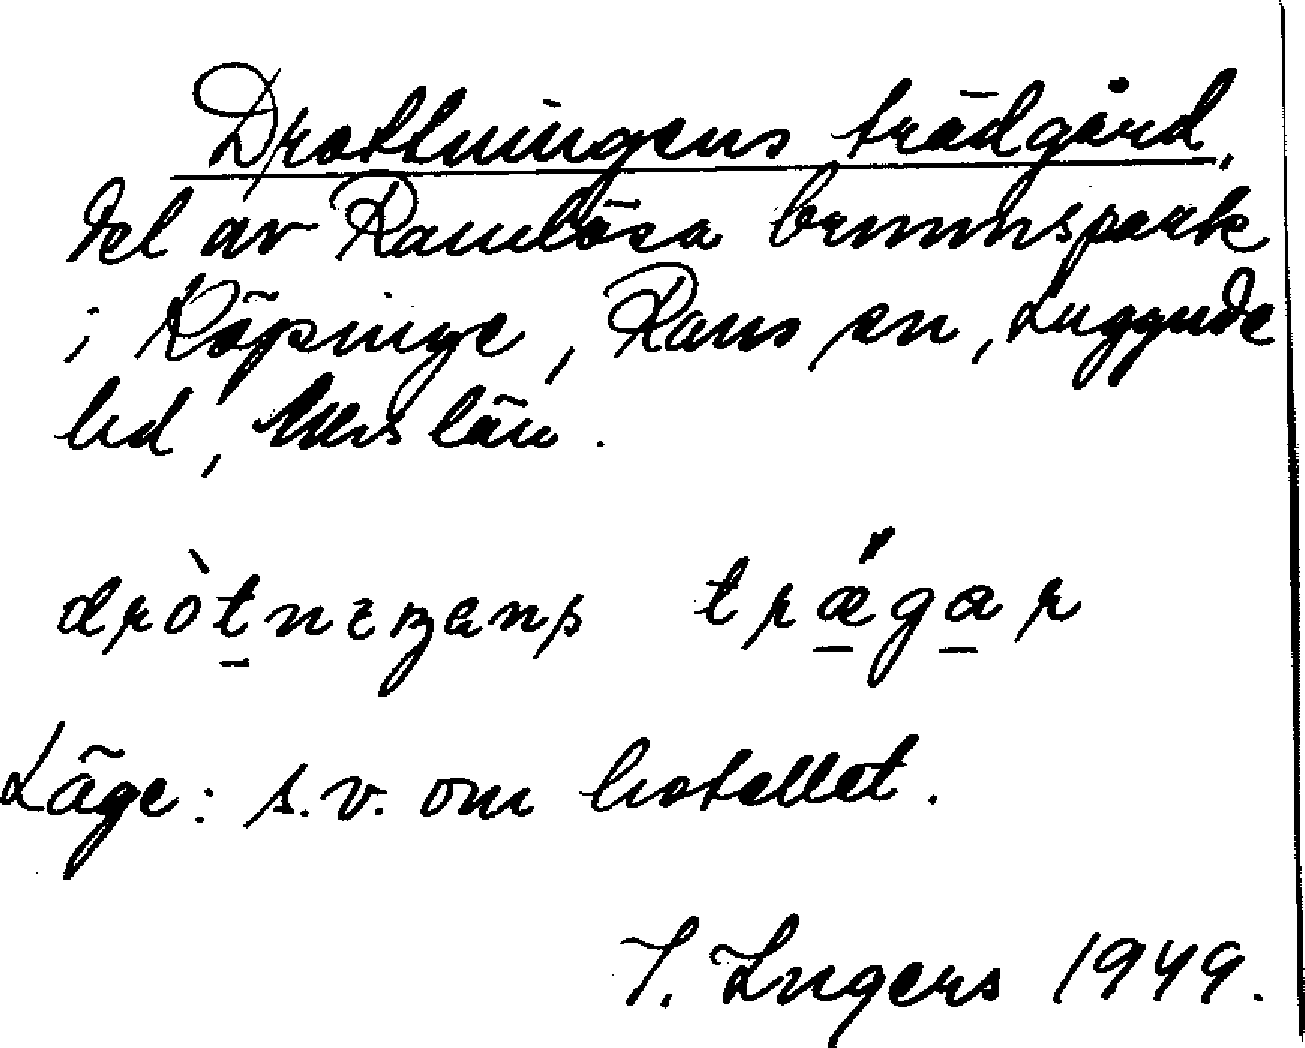 Drottningens trädgård,
del av Ramlösa brunnspark
i Köpinge, Raus sn, Luggude
hd, Mhs län.
dròtneŋens trǽgar
Läge: s.v. om hotellet.
I. Ingers 1949.